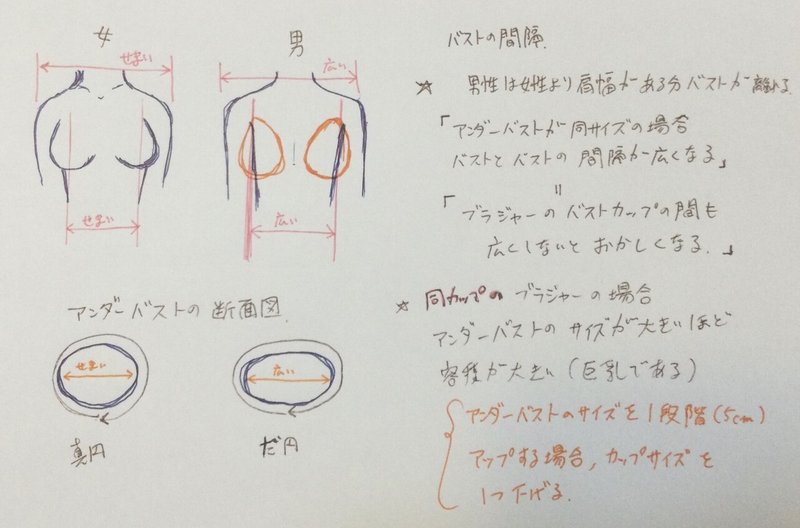 女
せまい
せまい
男
広い
広い
バストの間隔.
☆ 男性は女性より肩幅がある分バストが離れる
「アンダーバストが同サイズの場合
バストとバストの間隔が広くなる」
〃
「ブラジャーのバストカップの間も
広くしないとおかしくなる.」
アンダーバストの断面図.
せまい
真円
広い
だ円
☆ 同カップのブラジャーの場合
アンダーバストのサイズが大きいほど
容積が大きい(巨乳である)
アンダーバストのサイズを1段階(5cm)
アップする場合,カップサイズを
1つ下げる.